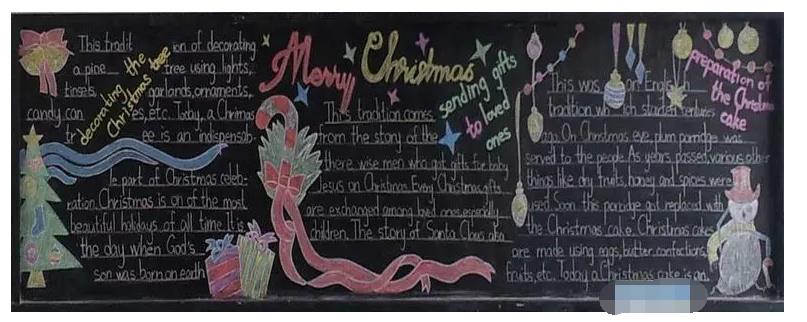 This tradit ion of decorating
a pine tree using lights,
tinsels, garlands, ornaments,
candy can es, etc. Today, a Chritmas
tr ee is an indispensab-
le part of Christmas celeb-
ration. Christmas is on of the most
beautiful holidays of all time. It is
the day when God's
son was born on earth
decorating the
Christmas tree
Merry Christmas
sending gifts
to loved
ones
This tradition comes
from the story of the
there wise men who got gifts for baby
Jesus on Christmas. Every Christmas, gifts
are exchanged among loved ones, especially
children. The story of Santa Claus also
preparation of
the Christmas
cake
This was an English
tradition which started centuries
ago. On Christmas eve, plum porridge was
served to the people. As years passed, various other
things like dry fruits, honey and spices were
used. Soon this porridge got replaced with
the Christmas cake. Christmas cakes
are made using eggs, butter, confections,
fruits, etc. Today, a Christmas cake is an